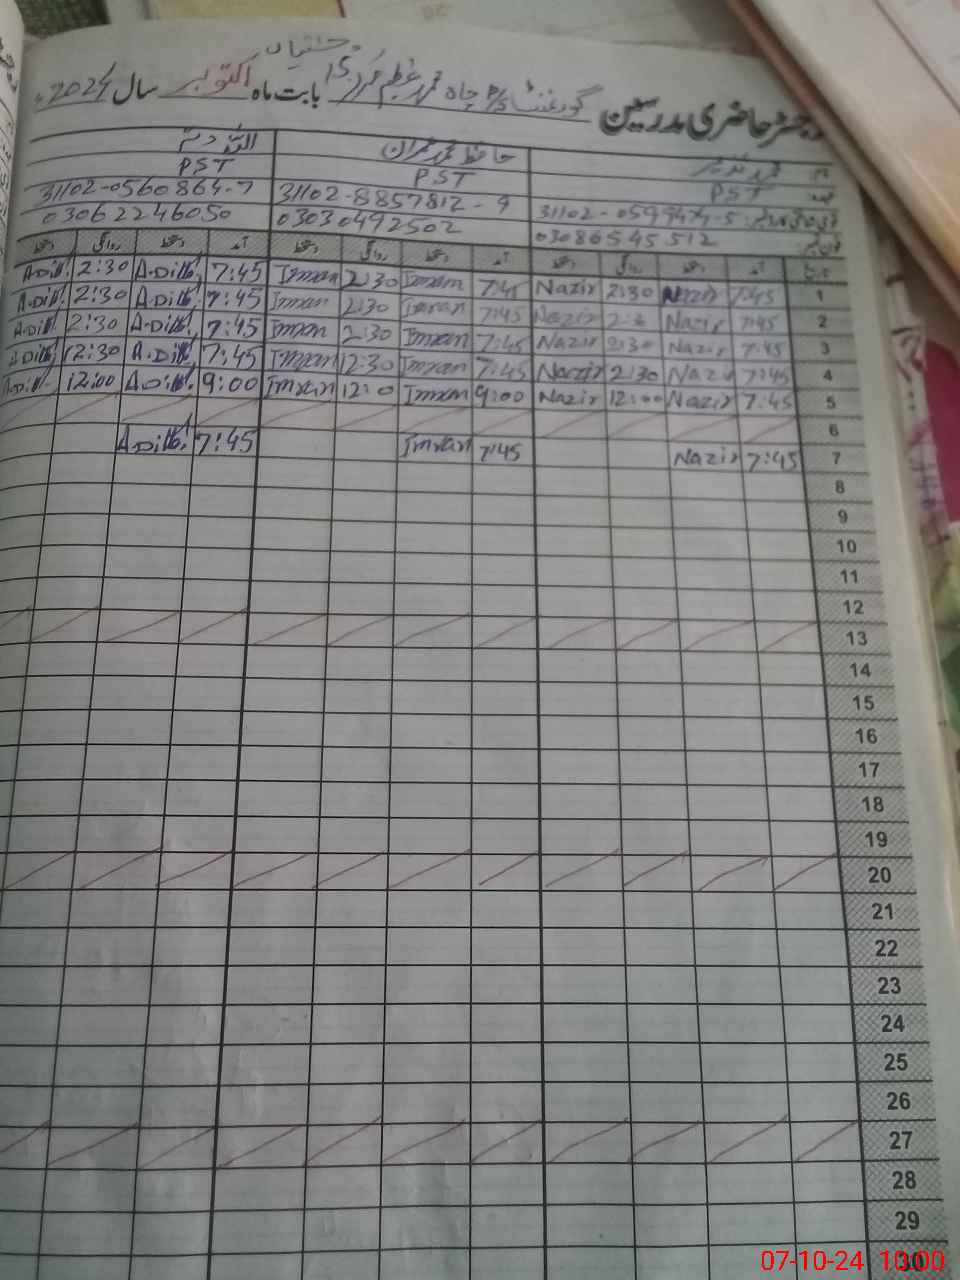 رجسٹر حاضری مدرسین گورنمنٹ P/S چاہ محمد عظیم بابت ماہ اکتوبر سال 2024ء
محمد نذیر حافظ محمد عمران اللہ دتہ
PST PST PST
31102-0599474-5 31102-8857812-9 31102-0560864-7
03086545512 03030492502 03062246050
تاریخ آمد دستخط روانگی دستخط آمد دستخط روانگی دستخط آمد دستخط روانگی دستخط
1 7:45 Nazir 2:30 Nazir 7:45 Imran 2:30 Imran 7:45 A.Ditta 2:30 A.Ditta
2 7:45 Nazir 2:3 Nazir 7:45 Imran 2:30 Imran 7:45 A.Ditta 2:30 A.Ditta
3 7:45 Nazir 2:30 Nazir 7:45 Imran 2:30 Imran 7:45 A.Ditta 2:30 A.Ditta
4 7:45 Nazir 2:30 Nazir 7:45 Imran 12:30 Imran 7:45 A.Ditta 12:30 A.Ditta
5 7:45 Nazir 12:00 Nazir 9:00 Imran 12:0 Imran 9:00 A.Ditta 12:00 A.Ditta
6
7 7:45 Nazir 7:45 Imran 7:45 A.Ditta
8
9
10
11
12
13
14
15
16
17
18
19
20
21
22
23
24
25
26
27
28
29
30
07-10-24 10:00